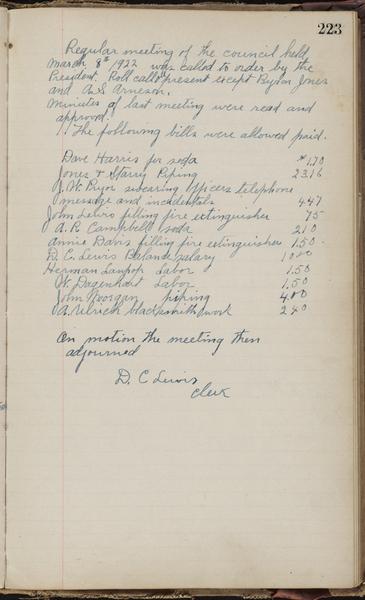 223
Regular meeting of the council held
March 8th 1922 was called to order by the
President. Roll call all present except Byron Jones
and A. S. Arneson.
Minutes of last meeting were read and
approved.
The following bills were allowed paid.
Dave Harris for soda $1.70
Jones & Harry Piping 23.16
J. W. Pryor swearing officers telephone
message and incidentals 4.47
John Lewis filling fire extinguisher 75
A. P. Campbell soda 210
Annie Davis filling fire extinguisher 1.50
D. C. Lewis Balance salary 1000
Herman Labor 1.50
W. Dagenhart Labor 1.50
John Morgan piping 4.00
A. Ulrich blacksmith work 240
On motion the meeting then
adjourned
D. C Lewis
Clerk